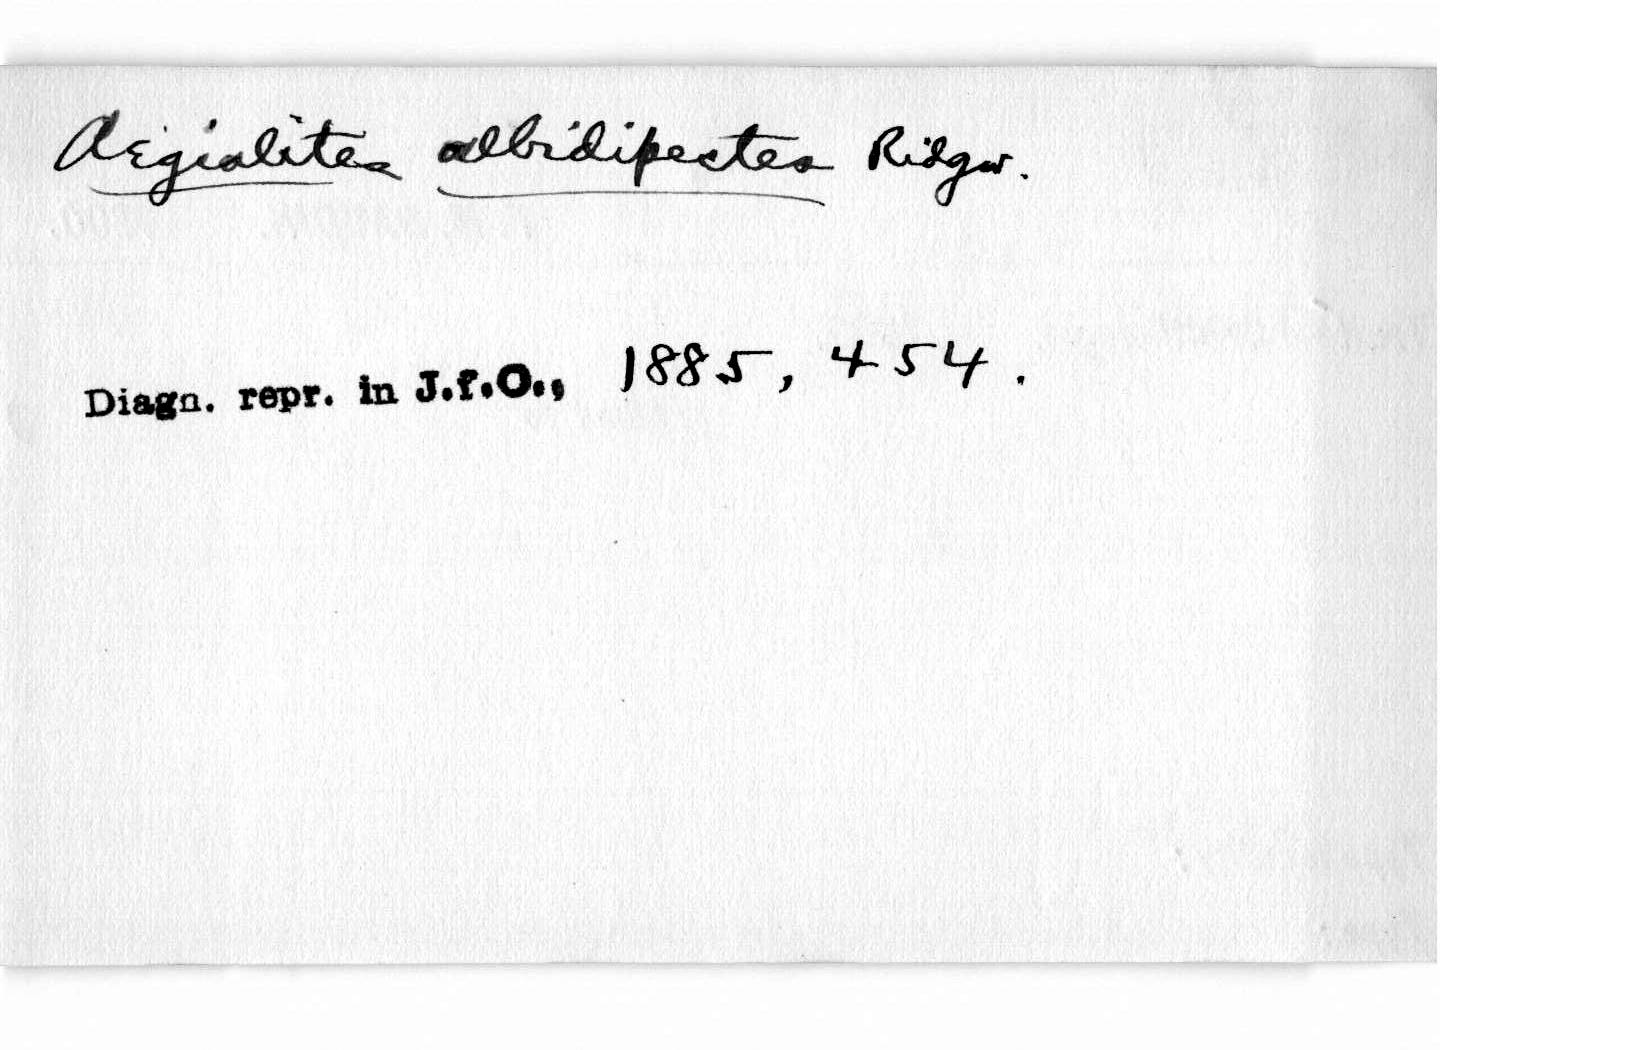 Aegialites albidipectes Ridgw.
Diagn. repr. in J.f.O., 1885, 454.